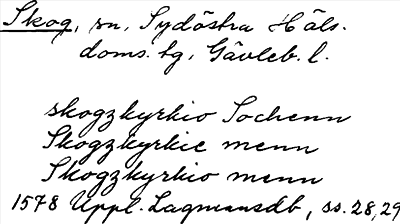 Skog, sn, Sydöstra Häls.
doms. tg, Gävleb. l.
skogzkyrkio Sochenn
Skogzkyrkie menn
Skogzkyrkio menn
1578 Uppl. Lagmansdb, ss. 28, 29